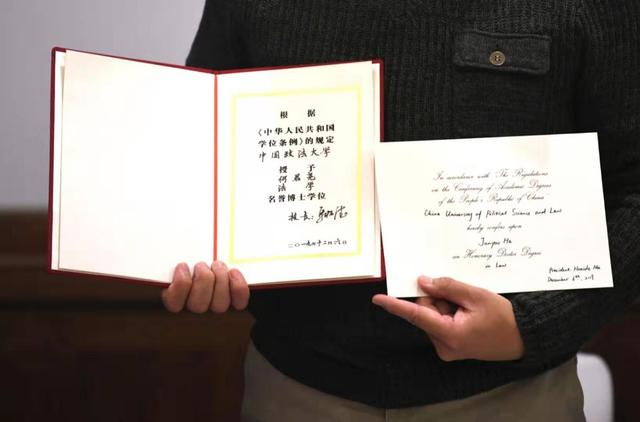 根据
《中华人民共和国
学位条例》的规定
中国政法大学
授予
何君尧
法学
名誉博士学位
校长：
二〇一九年十二月六日
In accordance with The Regulations
on the Conferring of Academic Degrees
of the People's Republic of China
China University of Political Science and Law
hereby confers upon
Junyao He
an Honorary Doctor Degree
in Law
President Huaide Ma
December 6th, 2019